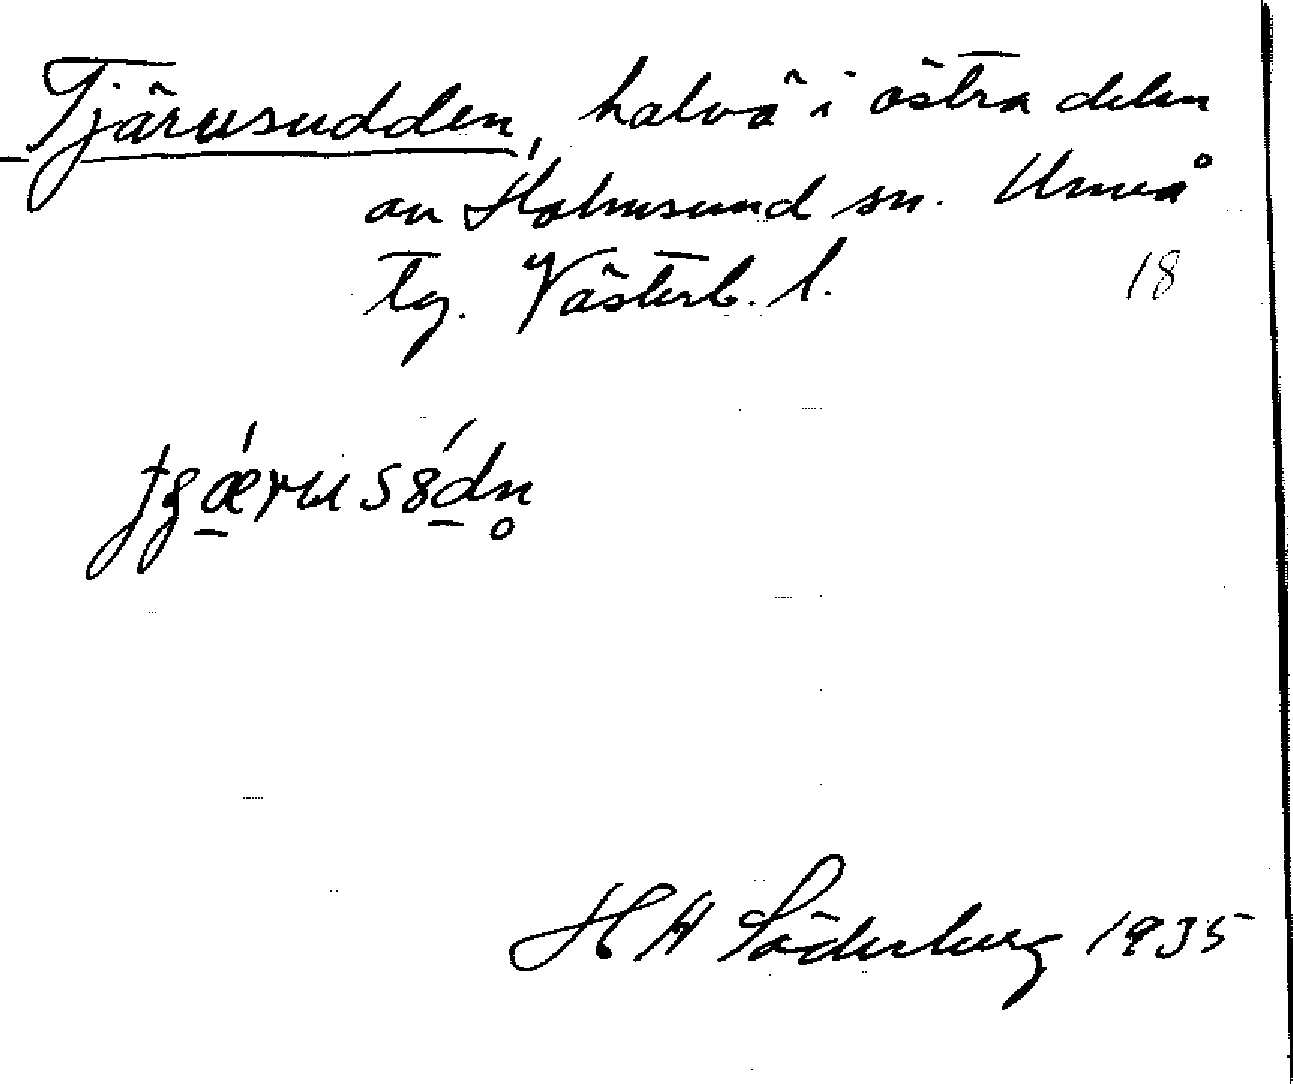 Tjärusudden, halvö i östra delen
av Holmsund sn. Umeå
tg. Västerb. l. 18
H H Söderberg 1935